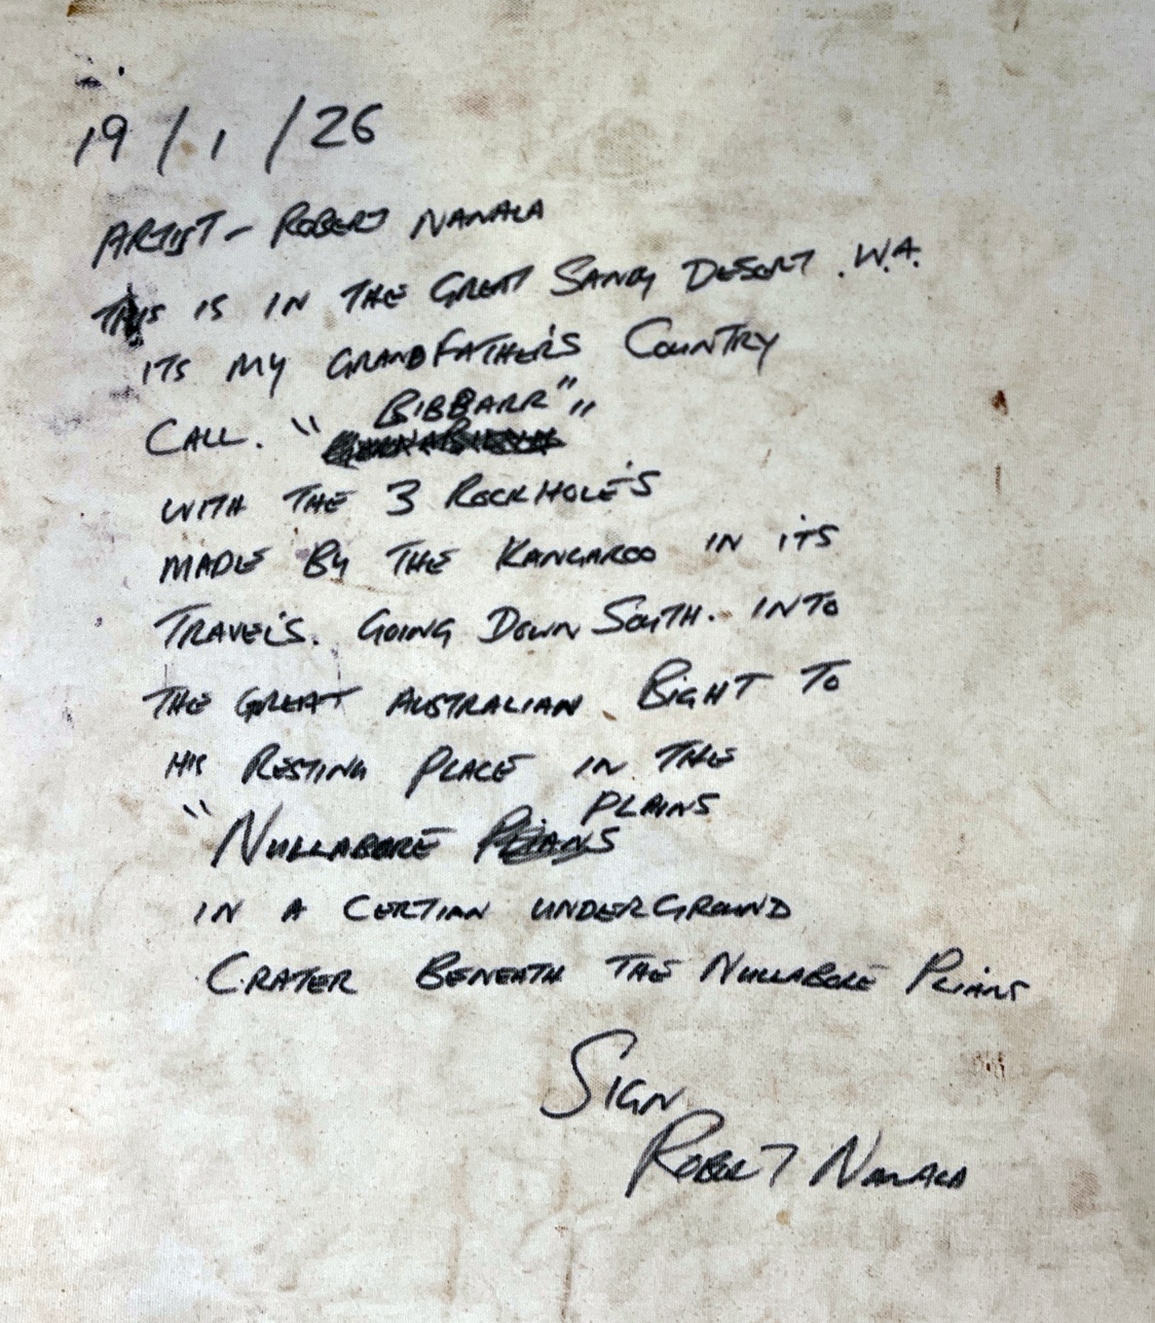 19/1/26
ARTIST - ROBERT NANALA
THIS IS IN THE GREAT SANDY DESERT. W.A.
ITS MY GRANDFATHER'S COUNTRY
CALL. " BIBBARR" "
WITH THE 3 ROCKHOLE'S
MADE BY THE KANGAROO IN ITS
TRAVEL'S. GOING DOWN SOUTH. INTO
THE GREAT AUSTRALIAN BIGHT TO
HIS RESTING PLACE IN THE
"NULLABORE PLAINS
IN A CERTIAN UNDERGROUND
CRATER BENEATH THE NULLABORE PLIANS
SIGN
ROBERT NANALA